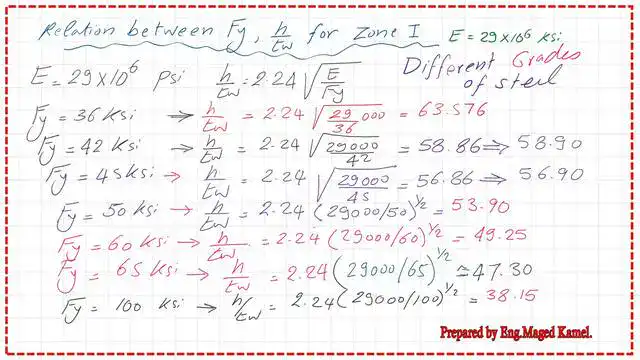 Relation between Fy, h/tw for Zone I E = 29x10⁶ Ksi
E = 29x10⁶ psi h/tw = 2.24 √(E/Fy) Different Grades of steel
Fy = 36 Ksi → h/tw = 2.24 √(29/36 000) = 63.576
Fy = 42 Ksi → h/tw = 2.24 √(29000/42) = 58.86 ⇒ 58.90
Fy = 45Ksi → h/tw = 2.24 √(29000/45) = 56.86 ⇒ 56.90
Fy = 50 Ksi → h/tw = 2.24 (29000/50)^1/2 = 53.90
Fy = 60 Ksi → h/tw = 2.24 (29000/60)^1/2 = 49.25
Fy = 65 Ksi → h/tw = 2.24 (29000/65)^1/2 ≅ 47.30
Fy = 100 Ksi → h/tw = 2.24 (29000/100)^1/2 = 38.15
Prepared by Eng.Maged Kamel.